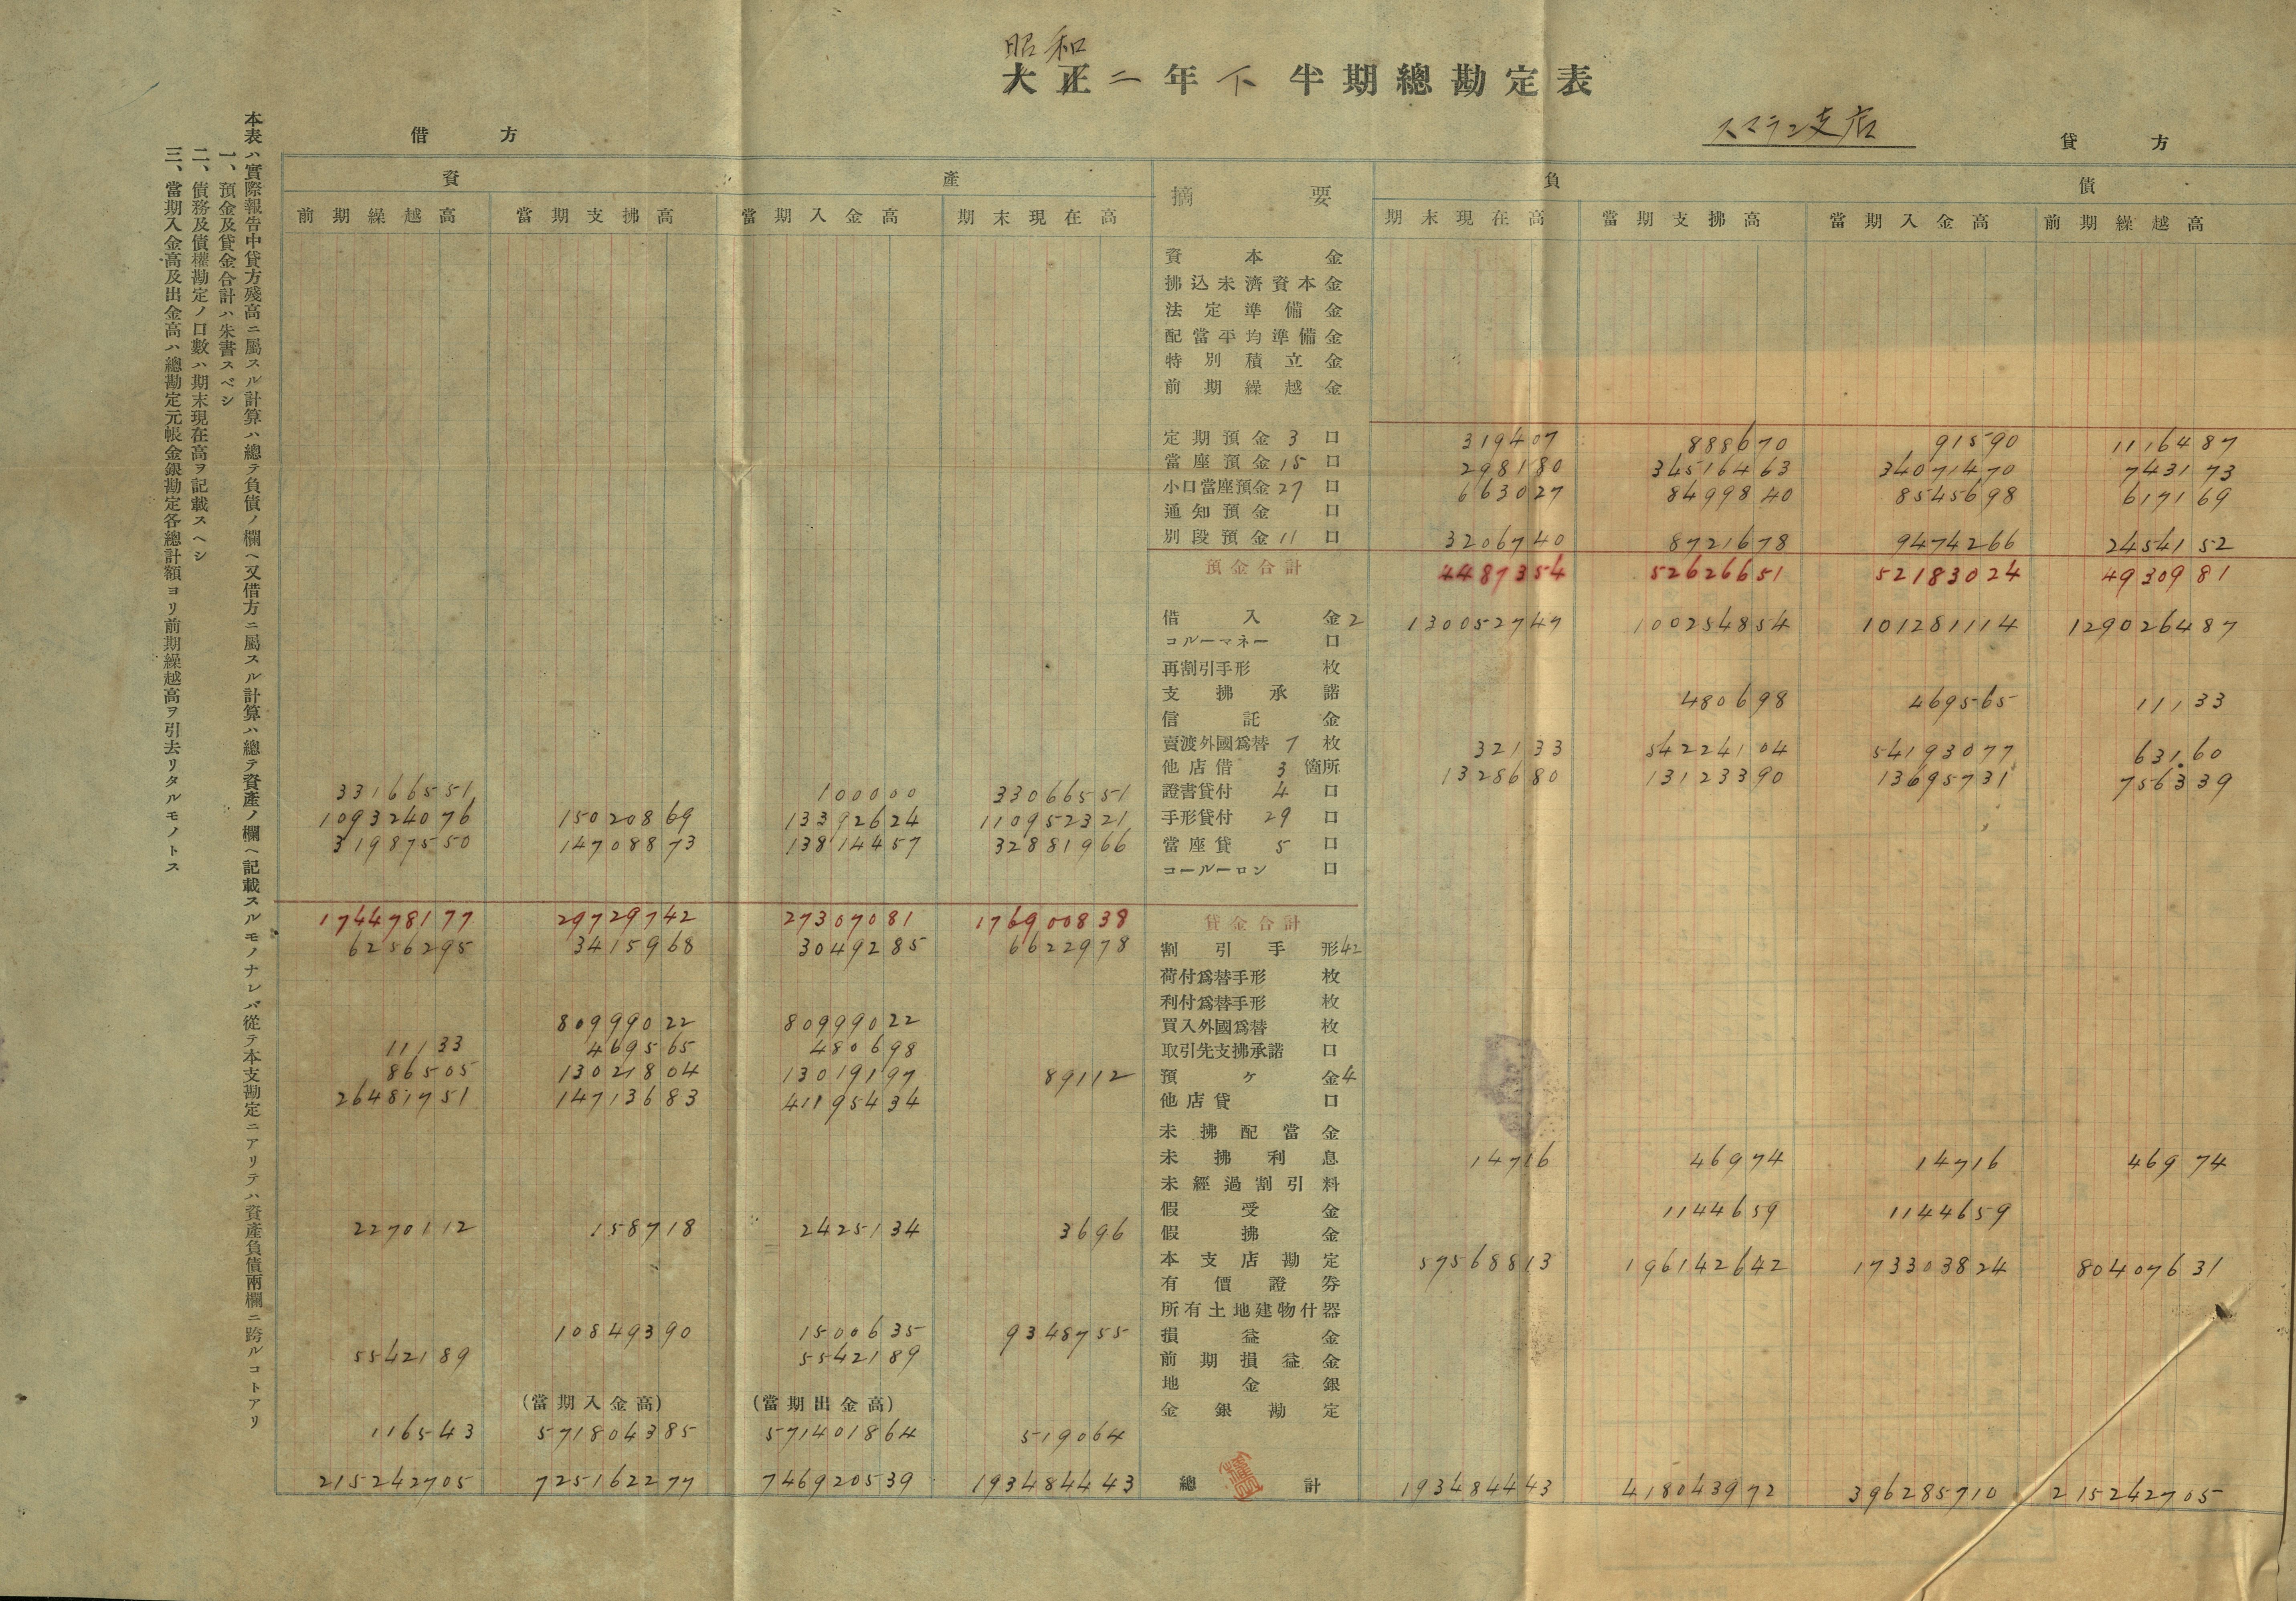 昭和
大正二年下半期總勘定表
スマラン支店
借方
貸方
資產
摘要
負債
前期繰越高 當期支拂高 當期入金高 期末現在高
期末現在高 當期支拂高 當期入金高 前期繰越高
資本金
拂込未濟資本金
法定準備金
配當平均準備金
特別積立金
前期繰越金
定期預金 3 口 319407 888670 91590 1116487
當座預金 15 口 298180 34516463 34071470 743173
小口當座預金 27 口 663027 8499840 8545698 617169
通知預金 口
別段預金 11 口 3206740 8721678 9474266 2454152
預金合計 4487354 52626651 52183024 4930981
借入金 2 130052747 100254854 101281114 129026487
コルーマネー 口
再割引手形 枚
支拂承諾 480698 469565 11133
信託金
賣渡外國爲替 7 枚 32133 54224104 54193077 63160
他店借 3 箇所 1328680 13123390 13695731 756339
33166551 100000 33066551 證書貸付 4 口
109324076 15020869 13392624 110952321 手形貸付 29 口
31987550 14708873 13814457 32881966 當座貸 5 口
コールーロン 口
174478177 29729742 27307081 176900838 貸金合計
6256295 3415968 3049285 6622978 割引手形 42
荷付爲替手形 枚
利付爲替手形 枚
80999022 80999022 買入外國爲替 枚
11133 469565 480698 取引先支拂承諾 口
86505 13021804 13019197 89112 預ケ金 4
26481751 14713683 41195434 他店貸 口
未拂配當金
未拂利息 14716 46974 14716 46974
未經過割引料
假受金 1144659 1144659
2270112 158718 2425134 3696 假拂金
本支店勘定 57568813 196142642 173303824 80407631
有價證券
所有土地建物什器
10849390 1500635 9348755 損益金
5542189 5542189 前期損益金
地金銀
(當期入金高) (當期出金高) 金銀勘定
116543 571804385 571401864 519064
215242705 725162277 746920539 193484443 總計 193484443 418043972 396285710 215242705
本表ハ實際報告中貸方殘高ニ屬スル計算ハ總テ負債ノ欄ヘ又借方ニ屬スル計算ハ總テ資產ノ欄ヘ記載スルモノナレバ從テ本支勘定ニアリテハ資產負債兩欄ニ跨ルコトアリ
一、預金及貸金合計ハ朱書スベシ
二、債務及債權勘定ノ口數ハ期末現在高ヲ記載スヘシ
三、當期入金高及出金高ハ總勘定元帳金銀勘定各總計額ヨリ前期繰越高ヲ引去リタルモノトス